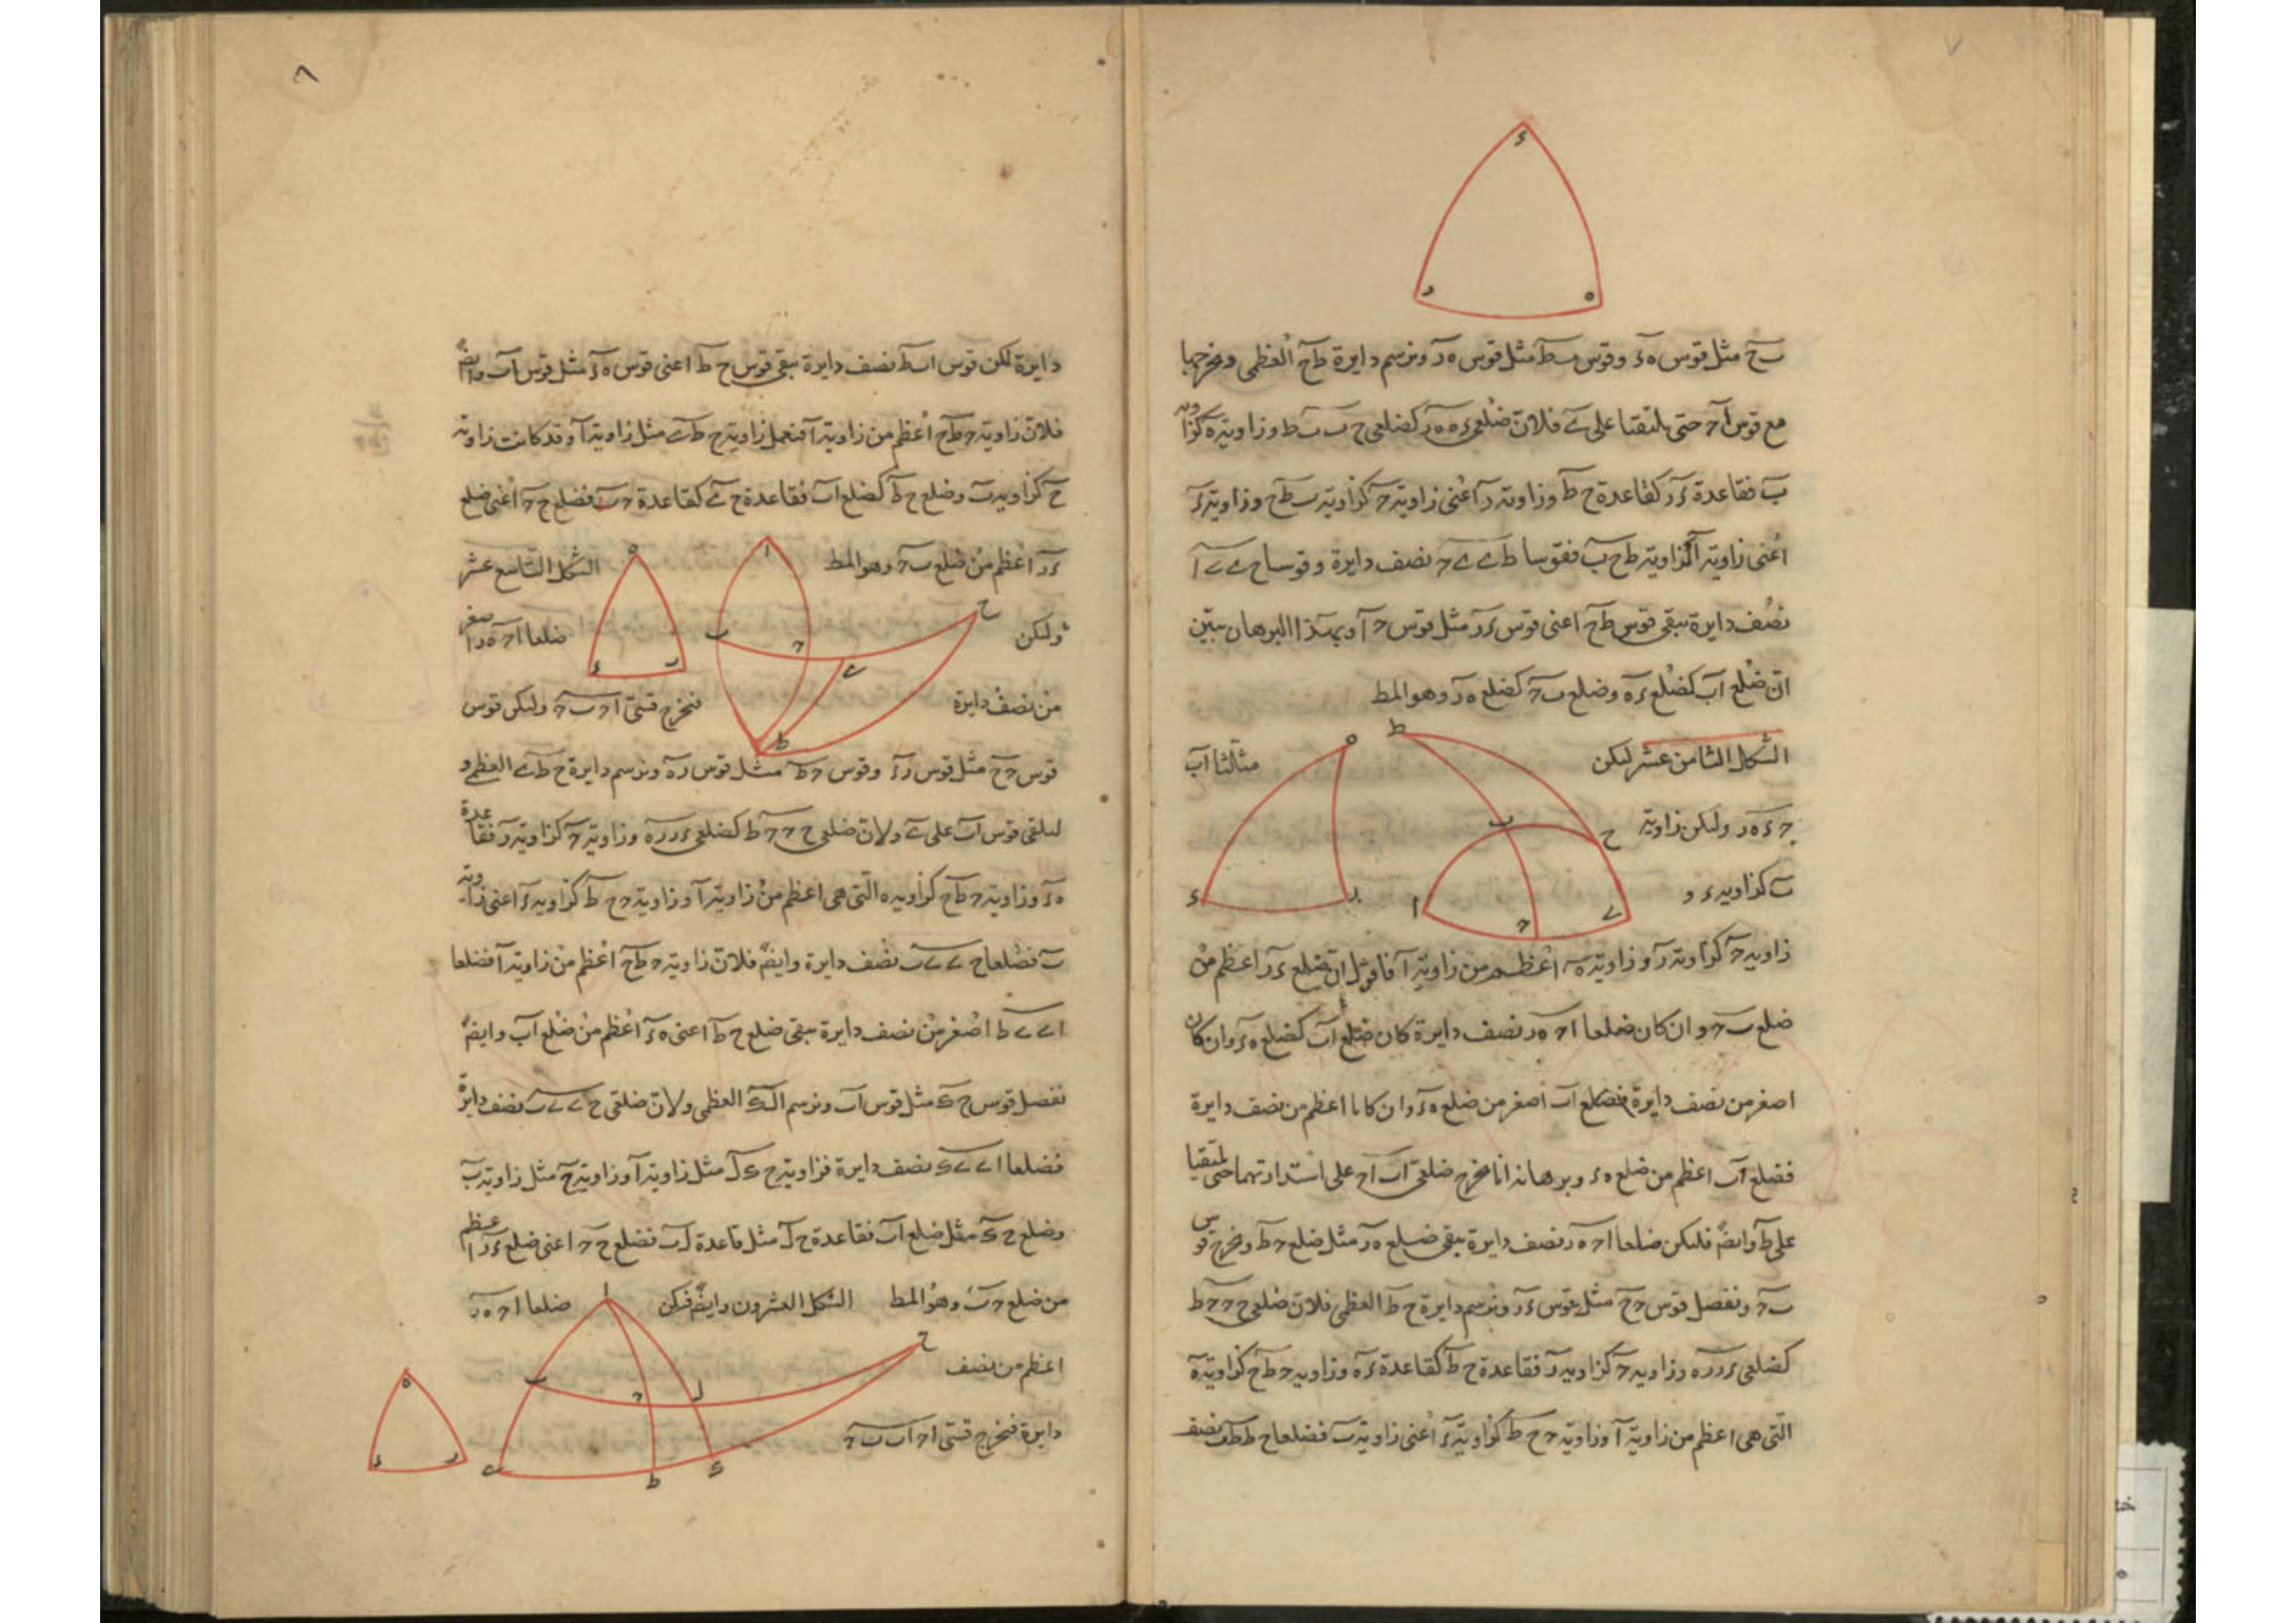 ٧
ٮح مثل قوس ه ء وقوس ٮط مثل قوس ه ر ونرسم دايرة طح العظمى ونخرجها
مع قوس اح حتى يلتقيا على ے فلان ضلعى ء ه ه ر كضلعى ح ب ب ط وزاوية ه كزاوية
ب فقاعدة ء ر كقاعدة ح ط وزاوية ر اعنى زاوية ح كزاوية ب ط ح وزاوية ء
اعنى زاوية ا كزاوية ط ح ب فقوسا ط ے ے ح نصف دايرة وقوسا ح ے ے ا
نصف دايرة يبقى قوس طح اعنى قوس ء ر مثل قوس ح ا وبهذا البرهان يبين
ان ضلع اب كضلع ء ه وضلع ب ح كضلع ه ر وهو المط
الشكل الثامن عشر ليكن مثلثا اب
ح ء ه ر وليكن زاوية
ب كزاوية ء و
زاوية ح كزاوية ر وزاوية ه اعظم من زاوية ا فاقول ان ضلع ء ر اعظم من
ضلع ب ح وان كان ضلعا اح ه ر نصف دايرة كان ضلع اب كضلع ه ء وان كان
اصغر من نصف دايرة فضلع اب اصغر من ضلع ه ء وان كانا اعظم من نصف دايرة
فضلع اب اعظم من ضلع ه ء وبرهانه انا نخرج ضلعى اب اح على استدارتهما حتى يلتقيا
على ط وايضً فليكن ضلعا اح ه ر نصف دايرة يبقى ضلع ه ر مثل ضلع ح ط ونخرج قوس
ب ح ونفصل قوس ح ح مثل قوس ء ر ونرسم دايرة ح ط العظمى فلان ضلعى ح ح ح ط
كضلعى ء ر ر ه وزاوية ح كزاوية ر فقاعدة ح ط كقاعدة ء ه وزاوية ح ط ح كزاوية ه
التى هى اعظم من زاوية ا وزاوية ح ح ط كزاوية ء اعنى زاوية ب فضلعا ح ط ط ب نصف
٨
دايرة لكن قوس اب ط نصف دايرة يبقى قوس ح ط اعنى قوس ه ء مثل قوس اب وايضً
فلان زاوية ح ط ح اعظم من زاوية ا فنعمل زاوية ح ط ے مثل زاوية ا وقد كانت زاوية
ح كزاوية ب وضلع ح ط كضلع اب فقاعدة ح ے كقاعدة ح ب فضلع ح ح اعنى ضلع
ء ر اعظم من ضلع ب ح وهو المط الشكل التاسع عشر
وليكن ضلعا اح ه ر اصغر
من نصف دايرة فنخرج قسى اح ب ح وليكن قوس
قوس ح ح مثل قوس ر ء وقوس ح ط مثل قوس ر ه ونرسم دايرة ح ط ے العظمى و
ليلقى قوس اب على ے ولان ضلعى ح ح ح ط كضلعى ء ر ر ه وزاوية ح كزاوية ر فقاعدة
ه ء وزاوية ح ط ح كزاوية ه التى هى اعظم من زاوية ا وزاوية ح ح ط كزاوية ء اعنى زاوية
ب فضلعا ح ے ے ب نصف دايرة وايضً فلان زاوية ح ط ح اعظم من زاوية ا فضلعا
ا ے ے ط اصغر من نصف دايرة يبقى ضلع ح ط اعنى ه ء اعظم من ضلع اب وايضً
نفصل قوس ح ك مثل قوس اب ونرسم ال ك العظمى ولان ضلعى ح ے ے ب نصف دايرة
فضلعا ا ے ے ك نصف دايرة فزاوية ح ك ل مثل زاوية ا وزاوية ح مثل زاوية ب
وضلع ح ك مثل ضلع اب فقاعدة ح ل مثل قاعدة ل ب فضلع ح ح اعنى ضلع ء ر اعظم
من ضلع ح ب وهو المط الشكل العشرون وايضً فركن ضلعا اح ه ر
اعظم من نصف
دايرة فنخرج قسى اح اب ب ح